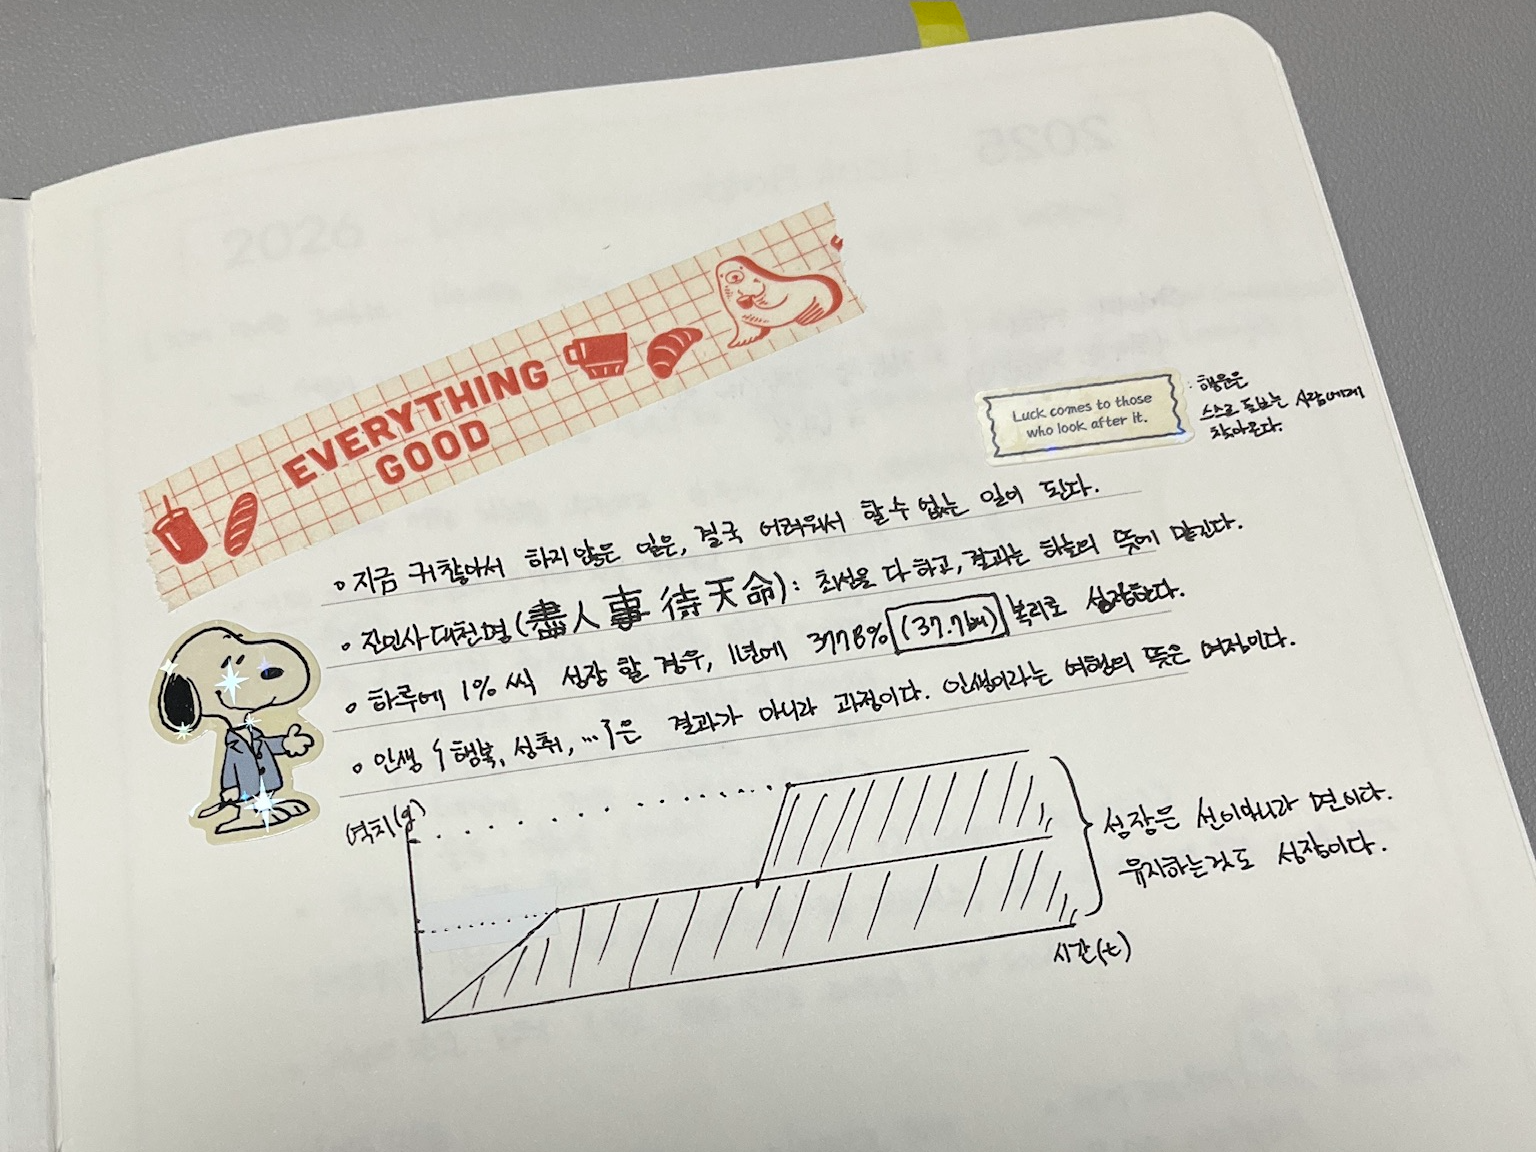 2025
2026
EVERYTHING
GOOD
Luck comes to those
who look after it.
: 행운은
스스로 돌보는 사람에게
찾아온다.
지금 귀찮아서 하지 않은 일은, 결국 어려워서 할 수 없는 일이 된다.
진인사대천명(盡人事 待天命): 최선을 다 하고, 결과는 하늘의 뜻에 맡긴다.
하루에 1% 씩 성장 할 경우, 1년에 3778% (37.7배) 복리로 성장한다.
인생 {행복, 성취, ...}은 결과가 아니라 과정이다. 인생이라는 여행의 뜻은 여정이다.
역치(y)
성장은 선이아니라 면이다.
유지하는것도 성장이다.
시간(t)